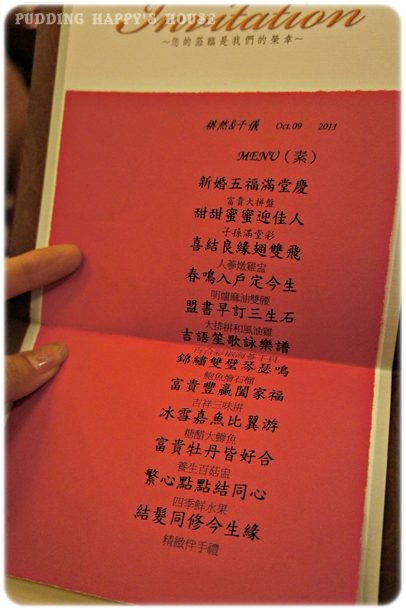 PUDDING HAPPY'S HOUSE
Invitation
~您的蒞臨是我們的榮幸~
祺然&千儀 Oct.09 2011
MENU(素)
新婚五福滿堂慶
富貴大拼盤
甜甜蜜蜜迎佳人
子孫滿堂彩
喜結良緣翅雙飛
人蔘燉雞盅
春鳴入戶定今生
明爐麻油雙腰
盟書早訂三生石
大排拼和風油雞
吉語笙歌詠樂譜
錦繡雙璧琴瑟鳴
鮑魚燴石榴
富貴豐贏闔家福
吉祥三味拼
冰雪嘉魚比翼游
糖醋大鱒魚
富貴牡丹皆好合
養生百菇盅
繫心點點結同心
四季鮮水果
結髮同修今生緣
精緻伴手禮